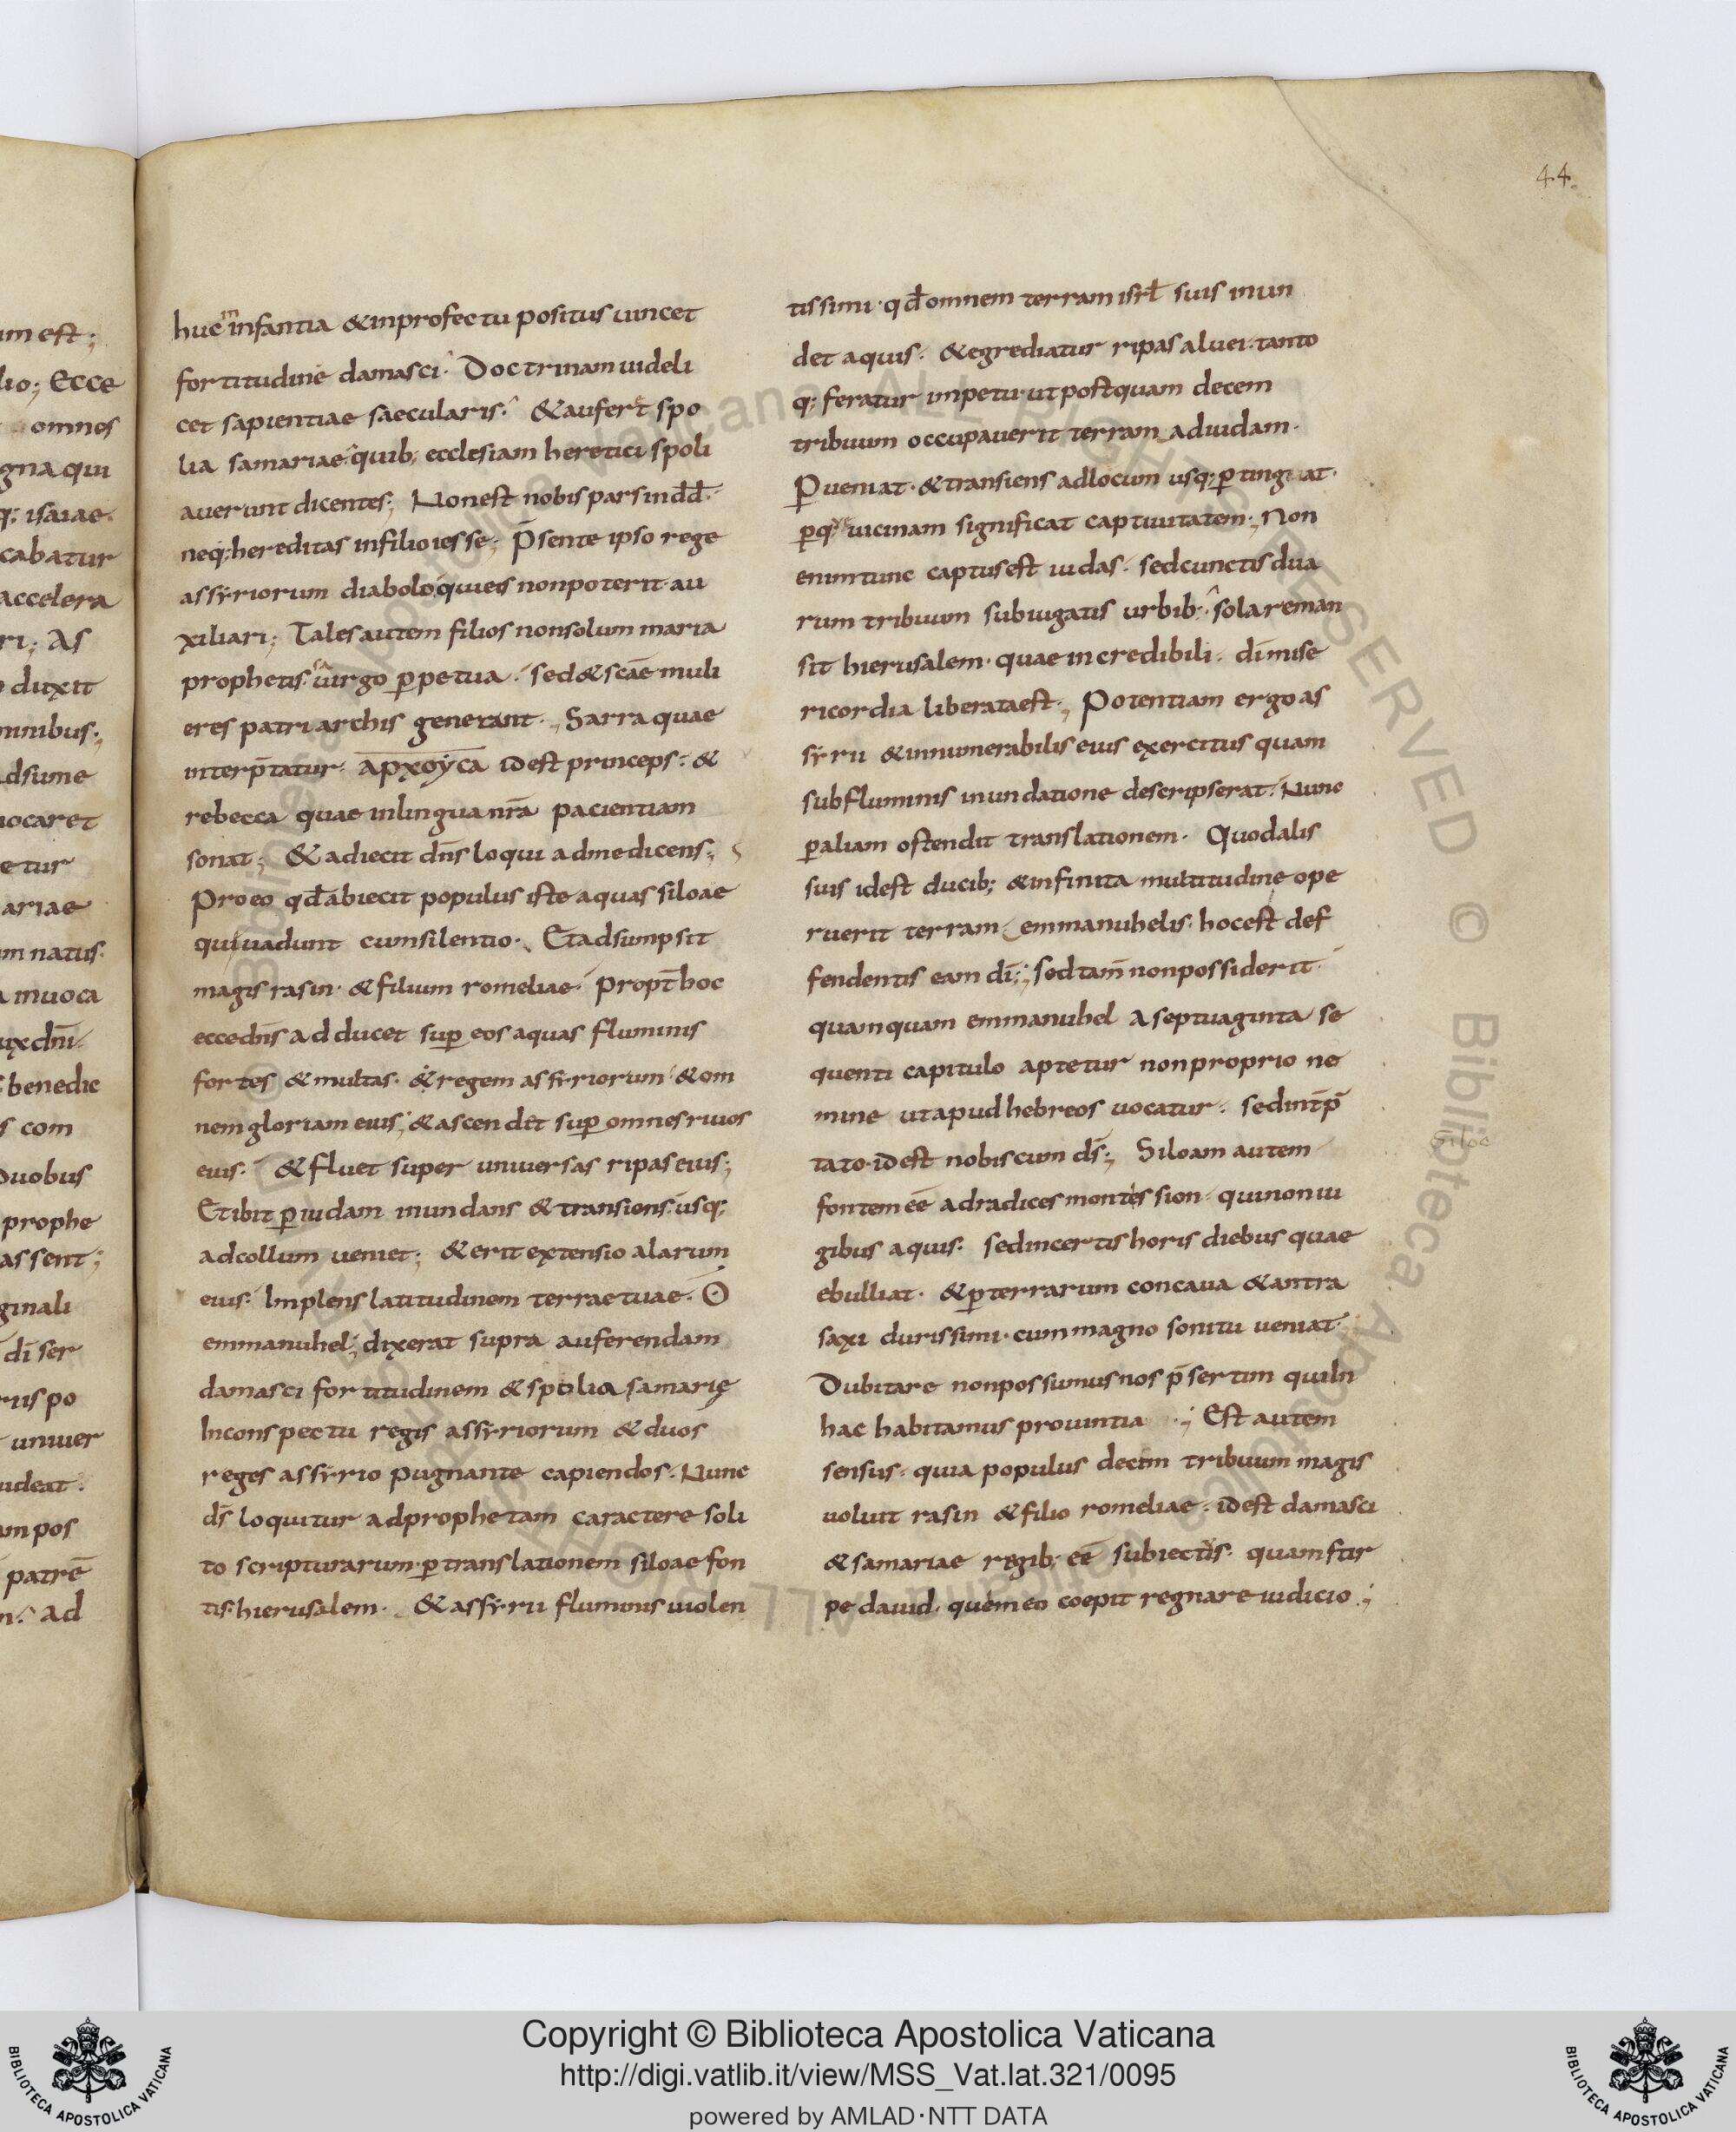 44.
um est;
lio; Ecce
omnes
gna qui
q; isaiae.
cabatur
accelera
ri; As
duxit
minibus;
adsume
uocaret
etur
ariae
m natus.
a inuoca
ux dñi.
benedic
s com
Duobus
prophe
assent;
ginali
dī ser
riis po
uniuer
uideat.
am pos
patrē
n. Ad
huc in infantia & inprofectu positus uincet
fortitudine damasci. Doctrinam uideli
cet sapientiae saecularis. & aufert spo
lia samariae quib; ecclesiam heretici spoli
auerunt dicentes; Non est nobis pars in dd̄.
neq; hereditas infilio iesse; P̄sente ipso rege
assyriorum diabolo qui eis nonpoterit au
xiliari; Tales autem filios nonsolum maria
prophetis uirgo perpetua. sed & scāe muli
eres patriarchis generant. Sarra quae
interp̄tatur. αρχογca idest princeps. &
rebecca quae inlingua nr̄a pacientiam
sonat; & adiecit dn̄s loqui adme dicens;
Pro eo qd̄ abiecit populus iste aquas siloae
qui uadunt cumsilentio. Et adsumpsit
magis rasin. & filium romeliae. Propt̄ hoc
ecce dn̄s adducet sup eos aquas fluminis
fortes & multas. & regem assyriorum & om
nem gloriam eius; & ascendet sup omnes riuos
eius. & fluet super uniuersas ripas eius;
Et ibit p iudam inundans & transiens usq;
adcollum ueniet; & erit extensio alarum
eius. Implens latitudinem terrae tuae. O
emmanuhel; dixerat supra auferendam
damasci fortitudinem & spolia samarię
Inconspectu regis assyriorum & duos
reges assyrio pugnante capiendos. Nunc
ds̄ loquitur adprophetam caractere soli
to scripturarum. p translationem siloae fon
tis hierusalem. & assyrii fluminis uiolen
tissimi. qd̄ omnem terram isrl̄ suis inun
det aquis. & egrediatur ripas aluei. tanto
q; feratur impetu. ut postquam decem
tribuum occupauerit terram adiudam.
Pueniat. & transiens adlocum usq; ptinguat.
pq uicinam significat captiuitatem; Non
enim tunc captus est iudas. sed cunctis dua
rum tribuum subiugatis urbib; sola reman
sit hierusalem. quae incredibili. dī mise
ricordia liberata est; Potentiam ergo as
syrii & innumerabilis eius exercitus quam
sub fluminis inundatione descripserat. Nunc
paliam ostendit translationem. Quod alis
suis idest ducib; & infinita multitudine ope
ruerit terram emmanuhelis. hoc est def
fendentis eam dī; sed tam̄ nonpossiderit.
quamquam emmanuhel a septuaginta se
quenti capitulo aptetur non proprio no
mine ut apud hebreos uocatur. sed intp̄
tato. idest nobiscum ds̄; Siloam autem
fontem eē adradices montis sion. qui non iu
gibus aquis. sed incertis horis diebusquae
ebulliat. & p terrarum concaua & antra
saxi durissimi. cum magno sonitu ueniat.
Dubitare nonpossumus nos p̄sertim qui In
hac habitamus prouintia.; Est autem
sensus. quia populus decem tribuum magis
uoluit rasin & filio romeliae. idest damasci
& samariae regib; eē subiectus. quam stir
pe dauid. quem eo coepit regnare iudicio;
Siloe
Copyright © Biblioteca Apostolica Vaticana
http://digi.vatlib.it/view/MSS_Vat.lat.321/0095
powered by AMLAD·NTT DATA
BIBLIOTECA APOSTOLICA VATICANA
BIBLIOTECA APOSTOLICA VATICANA